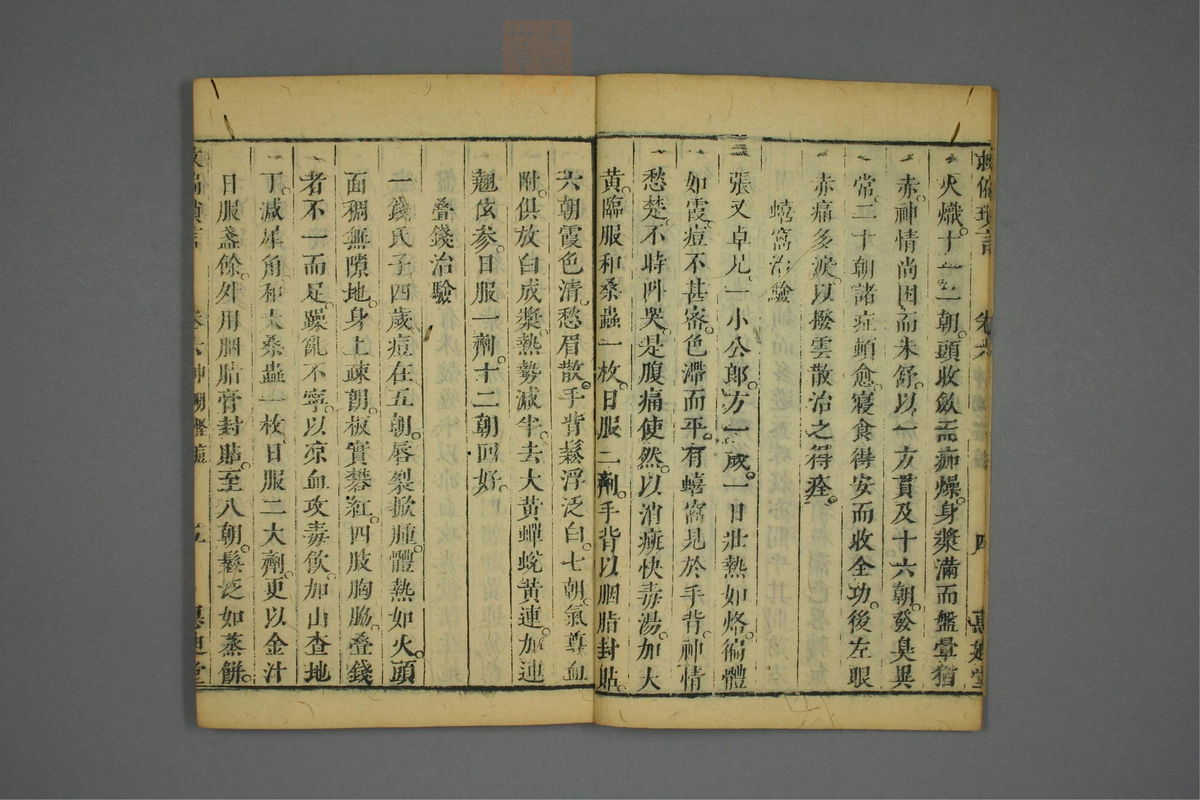 救偏瑣言 卷六 四 惠迪堂
火熾。十一二朝。頭收斂而痂燥。身漿滿而盤暈猶
赤。神情尚困而未舒。以一方貫及十六朝。發臭異
常。二十朝諸症頓愈。寢食得安而收全功。後左眼
赤痛多淚。以撥雲散治之得痊。
蟢窩治驗
張又卓兄。一小公郎。方一歲。一日壯熱如烙。徧體
如霞。痘不甚密。色滯而平。有蟢窩見於手背。神情
愁楚。不時呌哭。是腹痛使然。以消斑快毒湯。加大
黃。臨服和桑蟲一枚。日服二劑。手背以胭脂封貼。
六朝霞色清。愁眉散。手背鬆浮泛白。七朝。氣尊血
附。俱放白成漿。熱勢減半。去大黃蟬蛻黃連。加連
翹佽參。日服一劑。十二朝回好。
疊錢治驗
一錢氏子四歲。痘在五朝。唇裂掀腫。體熱如火。頭
面稠無隙地。身上疎朗。板實礬紅。四肢胸脇。疊錢
者不一而足。躁亂不寧。以凉血攻毒飲。加山查地
丁。減犀角和大桑蟲一枚。日服二大劑。更以金汁
日服盞餘。外用胭脂膏封貼。至八朝。鬆泛如蒸餅。
救偏瑣言 卷六 五 惠迪堂